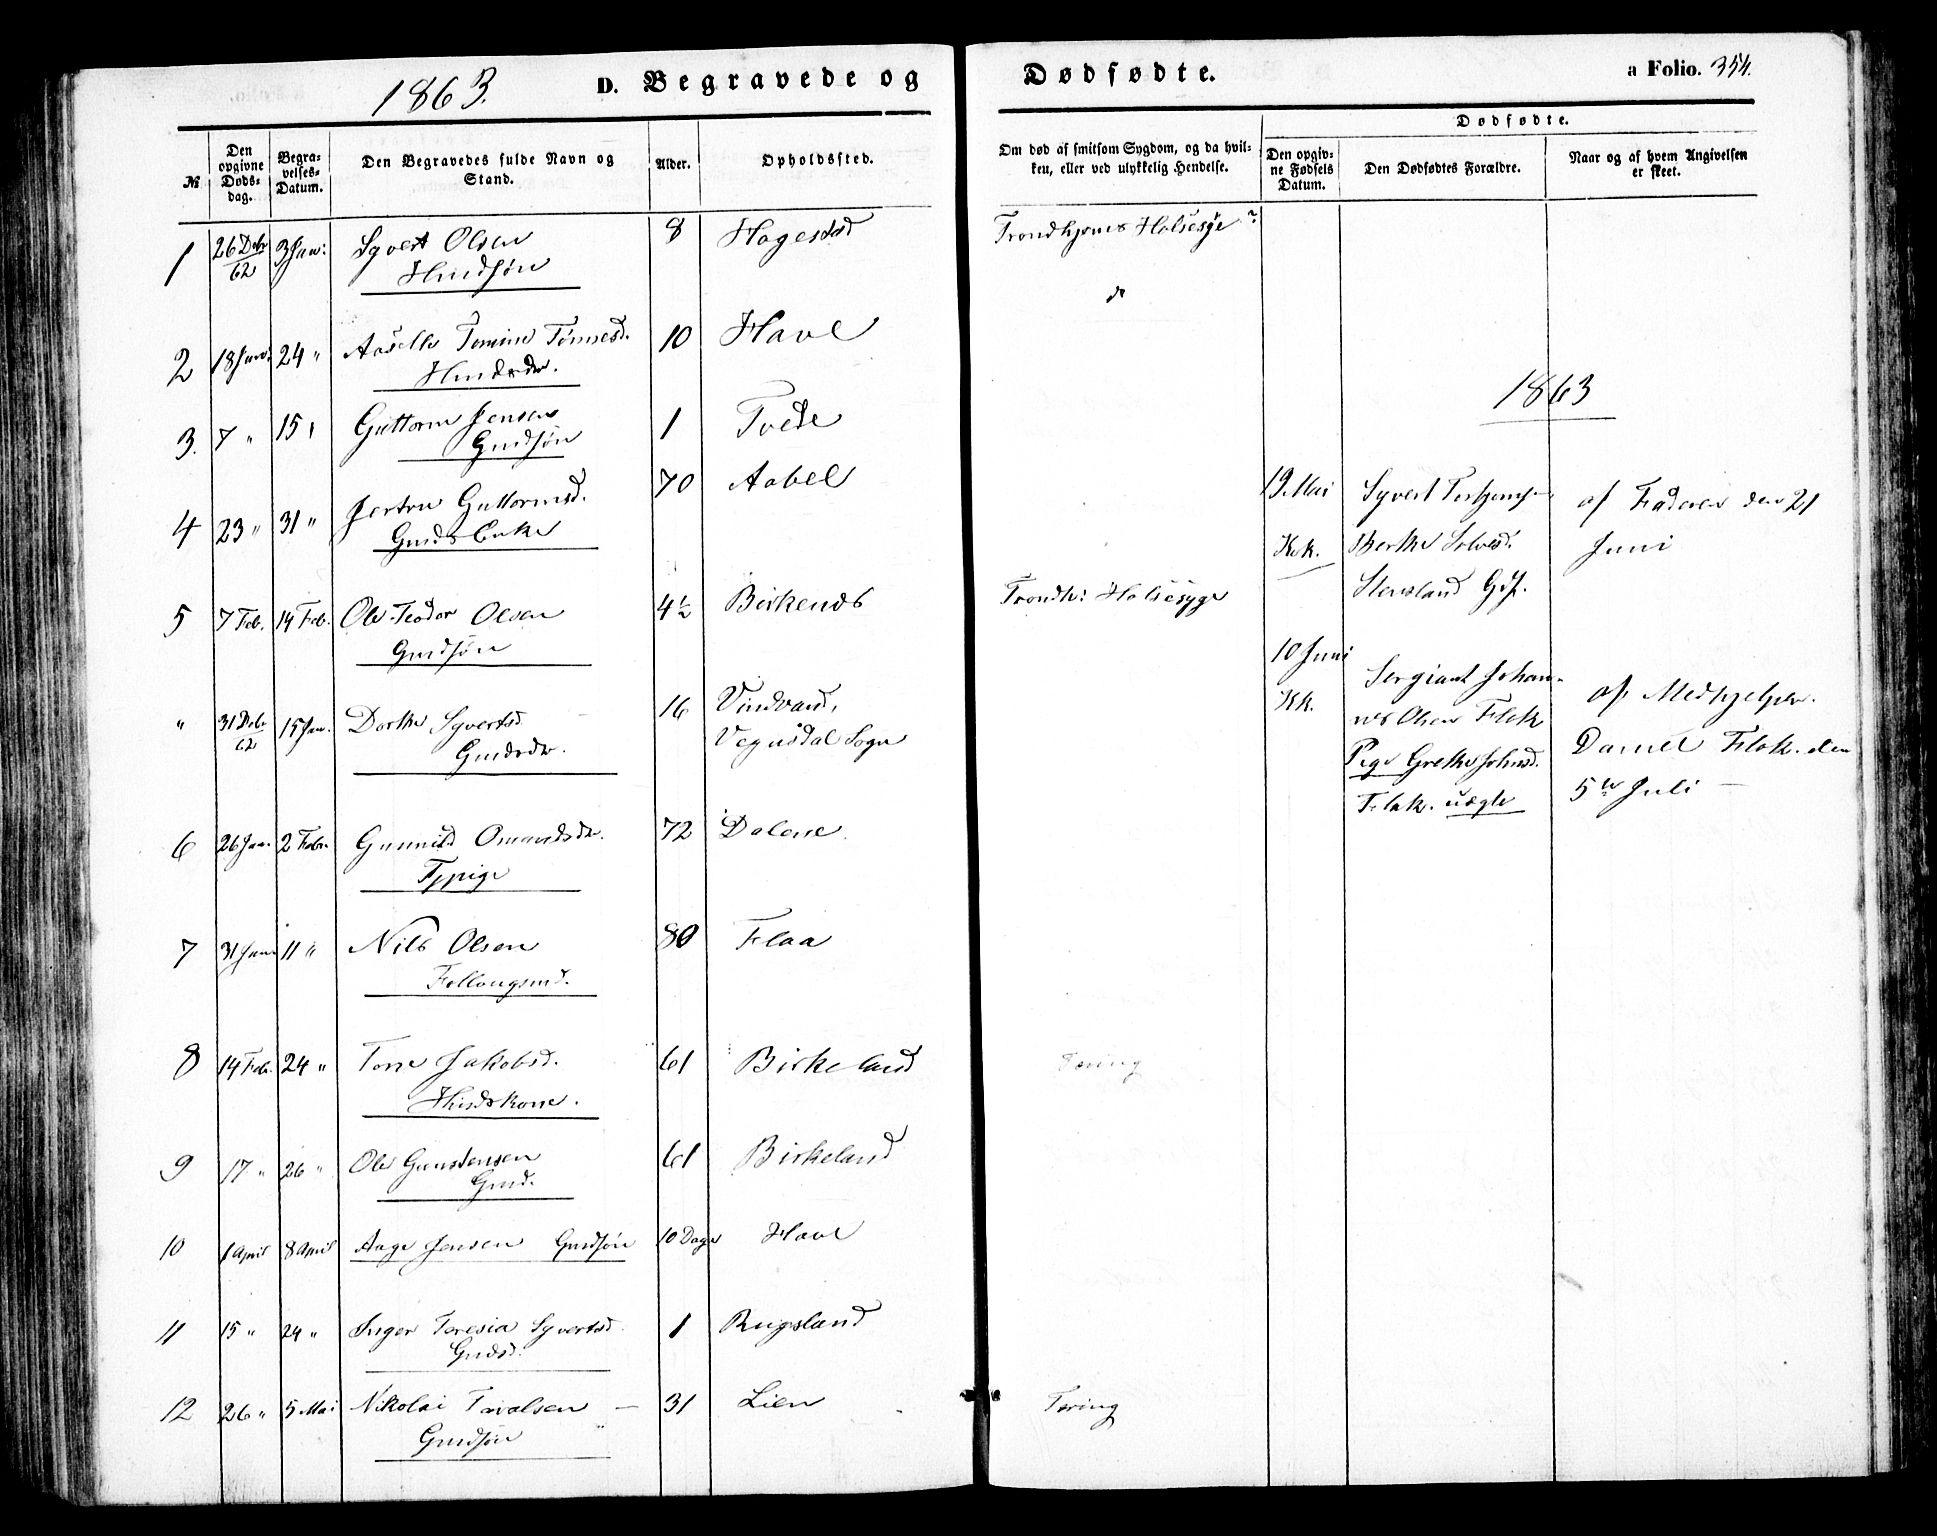 1863. D. Begravede og
Dødfødte.
a Folio. 354.
№
Den opgivne Døds-dag.
Begra-velses-Datum.
Den Begravedes fulde Navn og Stand.
Alder.
Opholdssted.
Om død af smitsom Sygdom, og da hvil-ken, eller ved ulykkelig Hendelse.
Dødfødte.
Den opgiv-ne Fødsels Datum.
Den Dødfødtes Forældre.
Naar og af hvem Angivelsen er skeet.
1 26 Debr 62 3 Jan: Syvert Olsen 8 Hagestad Trondhjems Halsesyge
Hmdsøn
2 18 Janr 24 " Aaselle Tomine Tønnesd. 10 Have
Hmdsdr.
3. 7 " 15 " Guttorm Jensen 1 Tvede
Gmdsøn
4 23 " 31 " Guttormsd. 70 Aabel
Gmds Enke
5 7 Feb. 14 Feb. Ole Teodor Olsen 4½ Birkenes Trondh: Halsesyge
Gmdsøn
" 31 Debr 62 15 Jan. Dorthe Syvertsd 16 Vindvand,
Gmdsdr. Vegusdal Sogn
6 26 Jan. 2 Febr. Gunnild Omundsdr. 72 Dalene
Fppige
7 31 Janr 11 " Nils Olsen 80 Flaa
Follaugsmd.
8 14 Feb. 24 " Tone Jakobsd. 61 Birkeland Tæring
Hmdskone.
9 17 " 26 " Ole Gunstensen 61 Birkeland
Gmd.
10 1 April 8 April Aage Jensen Gmdsøn 10 Dage Have
11 15 " 24 " Inger Teresia Syvertsd. 1 Rugsland
Gmdsd.
12 26 " 5 Mai Nikolai Tarvalsen 31 Lien Tæring
Gmdsøn
1863
19 Mai Syvert af Faderen den 21
Kok. Berthe Solvesd. Juni
Stensland Gdf.
10 Juni
Sergiant Johan-
Kk. nes Olsen Flak af Medhjelper.
Pige Grethe Johnsd. Daniel Flak. den
Flak. uægte 5te Juli